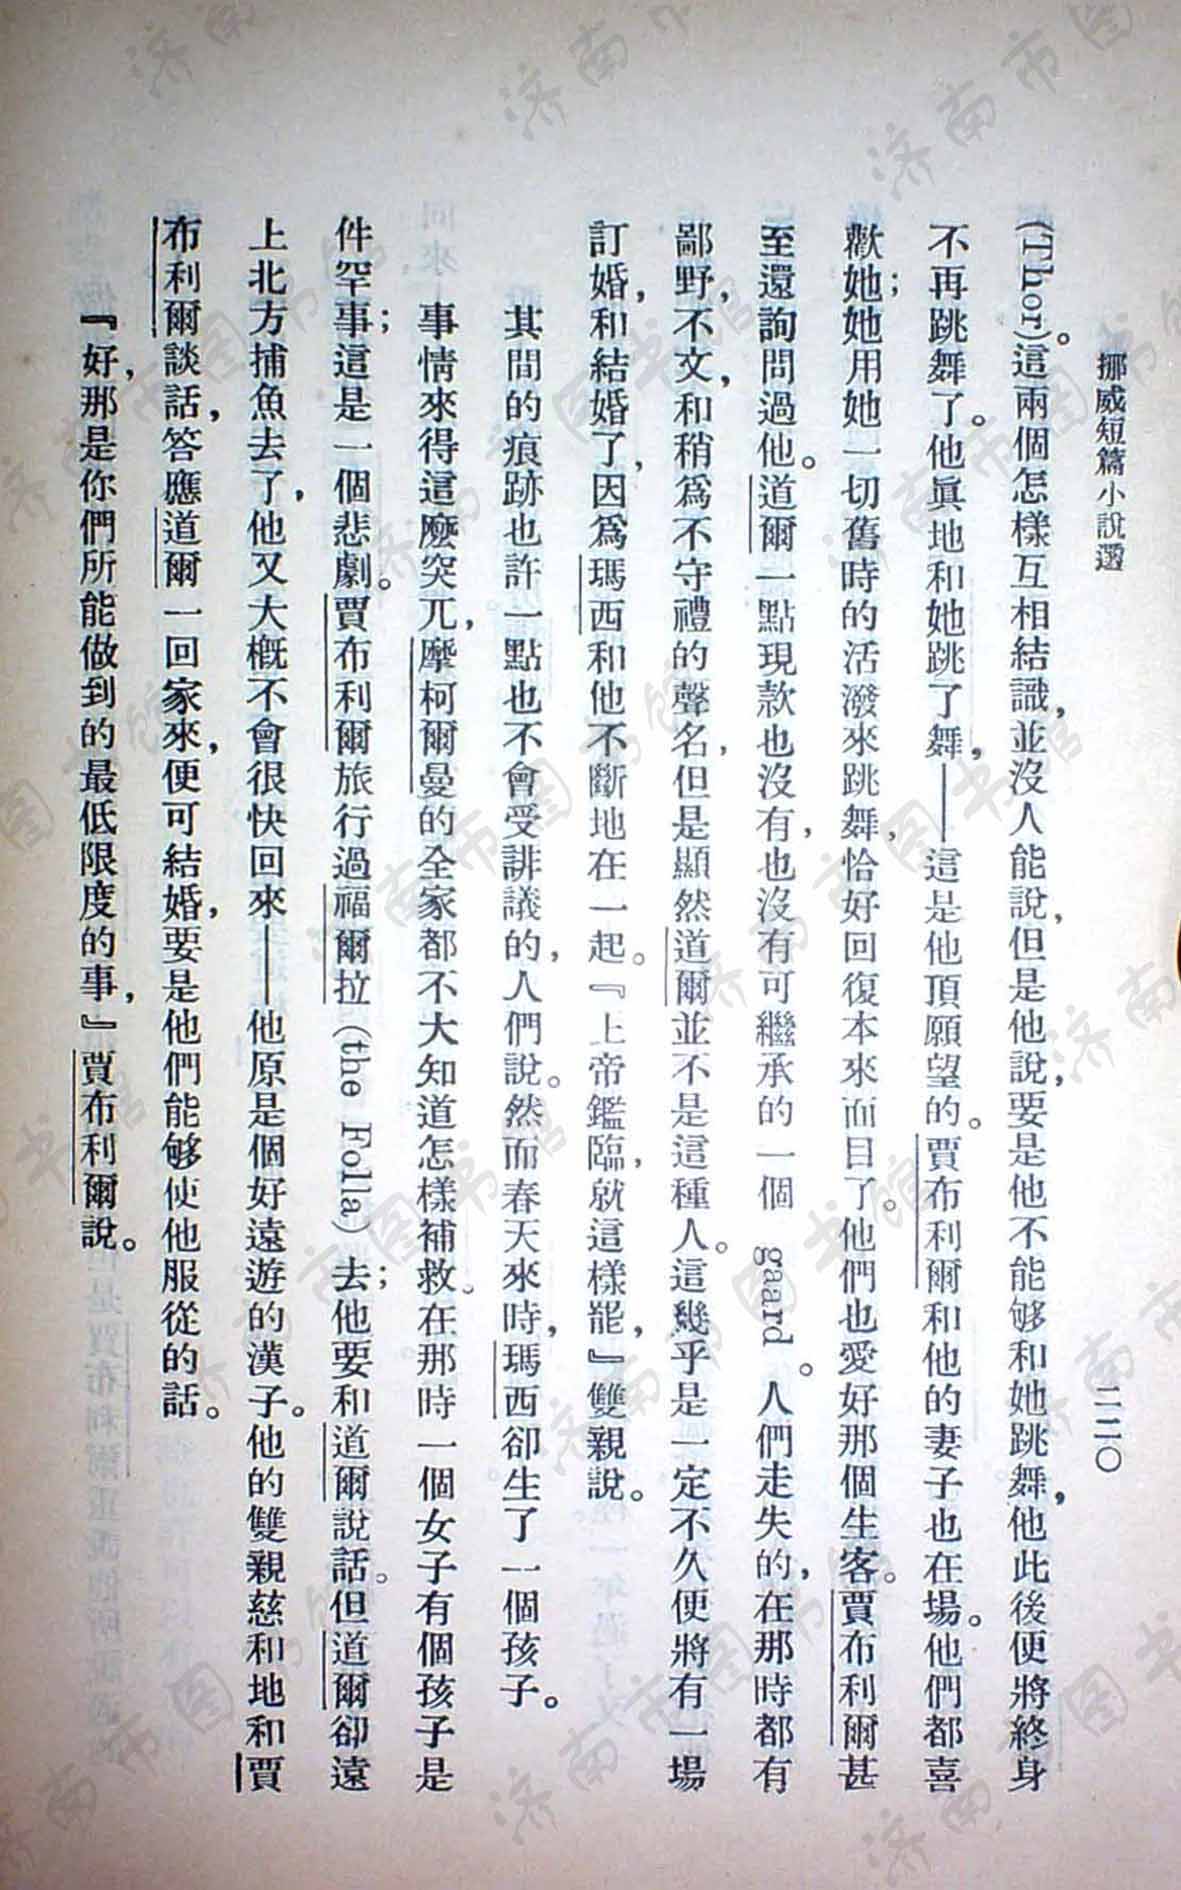 挪威短篇小說選
二二〇
(Thor)。這兩個怎樣互相結識，並沒人能說，但是他說，要是他不能够和她跳舞，他此後便將終身
不再跳舞了。他眞地和她跳了舞，——這是他頂願望的。賈布利爾和他的妻子也在場。他們都喜
歡她；她用她一切舊時的活潑來跳舞，恰好回復本來面目了。他們也愛好那個生客。賈布利爾甚
至還詢問過他。道爾一點現款也沒有，也沒有可繼承的一個 gaard 。人們走失的，在那時都有
鄙野，不文，和稍爲不守禮的聲名，但是顯然道爾並不是這種人。這幾乎是一定不久便將有一場
訂婚，和結婚了，因爲瑪西和他不斷地在一起。『上帝鑑臨，就這樣罷，』雙親說。
其間的痕跡也許一點也不會受誹議的，人們說。然而春天來時，瑪西卻生了一個孩子。
事情來得這麼突兀，摩柯爾曼的全家都不大知道怎樣補救。在那時一個女子有個孩子是
件罕事；這是一個悲劇。賈布利爾旅行過福爾拉 (the Folla) 去；他要和道爾說話。但道爾卻遠
上北方捕魚去了，他又大概不會很快回來——他原是個好遠遊的漢子。他的雙親慈和地和賈
布利爾談話，答應道爾一回家來，便可結婚，要是他們能够使他服從的話。
『好，那是你們所能做到的最低限度的事，』賈布利爾說。